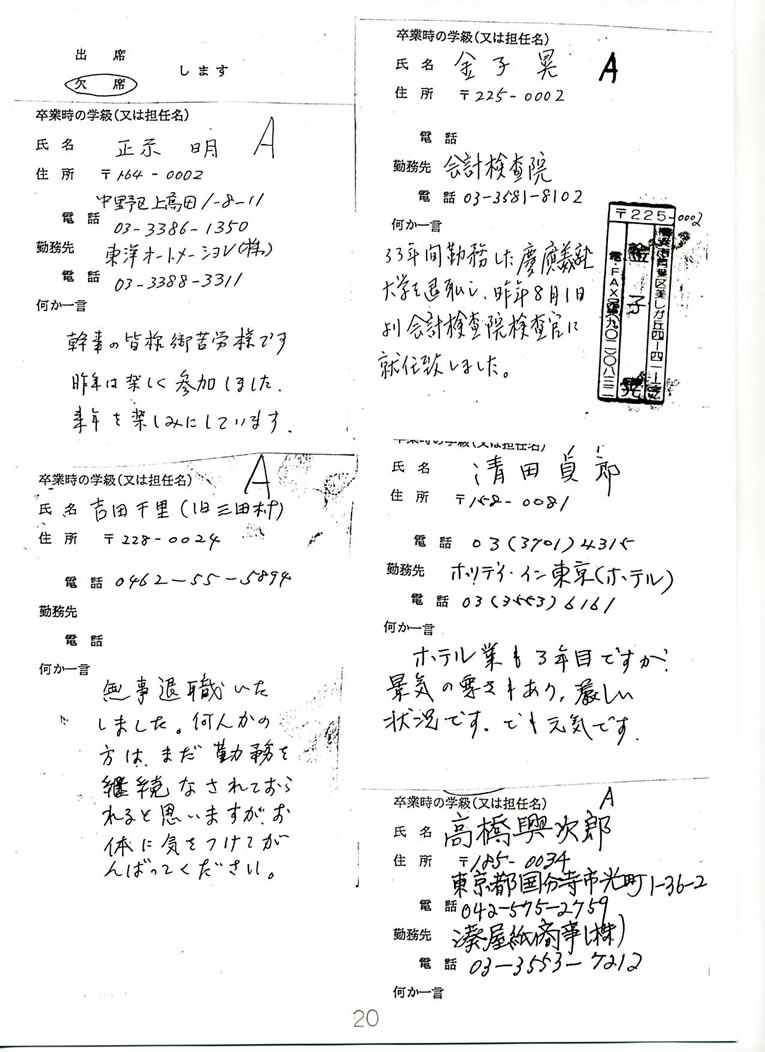 出 席
欠 席
します
卒業時の学級(又は担任名) A
氏 名 正示 明
住 所 〒164-0002
中野区上高田1-8-11
電 話 03-3386-1350
勤務先 東洋オートメーション(株)
電 話 03-3388-3311
何か一言
幹事の皆様御苦労様です
昨年は楽しく参加しました、
来年を楽しみにしています.
卒業時の学級(又は担任名) A
氏 名 吉田千里(旧三田村)
住 所 〒228-0024
電 話 0462-55-5894
勤務先
電 話
何か一言
無事退職いた
しました。何人かの
方は、まだ勤務を
継続なされておら
れると思いますが、お
体に気をつけてが
んばってください。
卒業時の学級(又は担任名)
氏 名 金子 晃 A
住 所 〒225-0002
電 話
勤務先 会計検査院
電 話 03-3581-8102
何か一言
33年間勤務した慶應義塾
大学を退職し、昨年8月1日
より会計検査院検査官に
就任致しました。
〒225-0002
金子 晃
卒業時の学級(又は担任名)
氏 名 清田貞郎
住 所 〒158-0081
電 話 03(3701)4315
勤務先 ホリデイ・イン東京(ホテル)
電 話 03(3553)6161
何か一言
ホテル業も3年目ですが、
景気の悪さもあり、厳しい
状況です。でも元気です.
卒業時の学級(又は担任名) A
氏 名 高橋興次郎
住 所 〒185-0034
東京都国分寺市光町1-36-2
電 話 042-575-2759
勤務先 湊屋紙商事(株)
電 話 03-3553-7212
何か一言
20